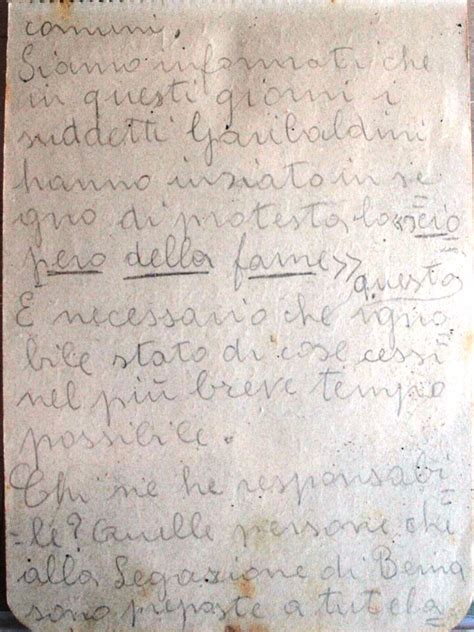 comuni.
Siamo informati che
in questi giorni i
suddetti Garibaldini
hanno iniziato in se
gno di protesta lo «scio
pero della fame»
questo
È necessario che igno
bile stato di cose cessi
nel più breve tempo
possibile.
Chi ne he responsabi-
-le? Quelle persone che
alla Legazione di Berna
sono preposte a tutela